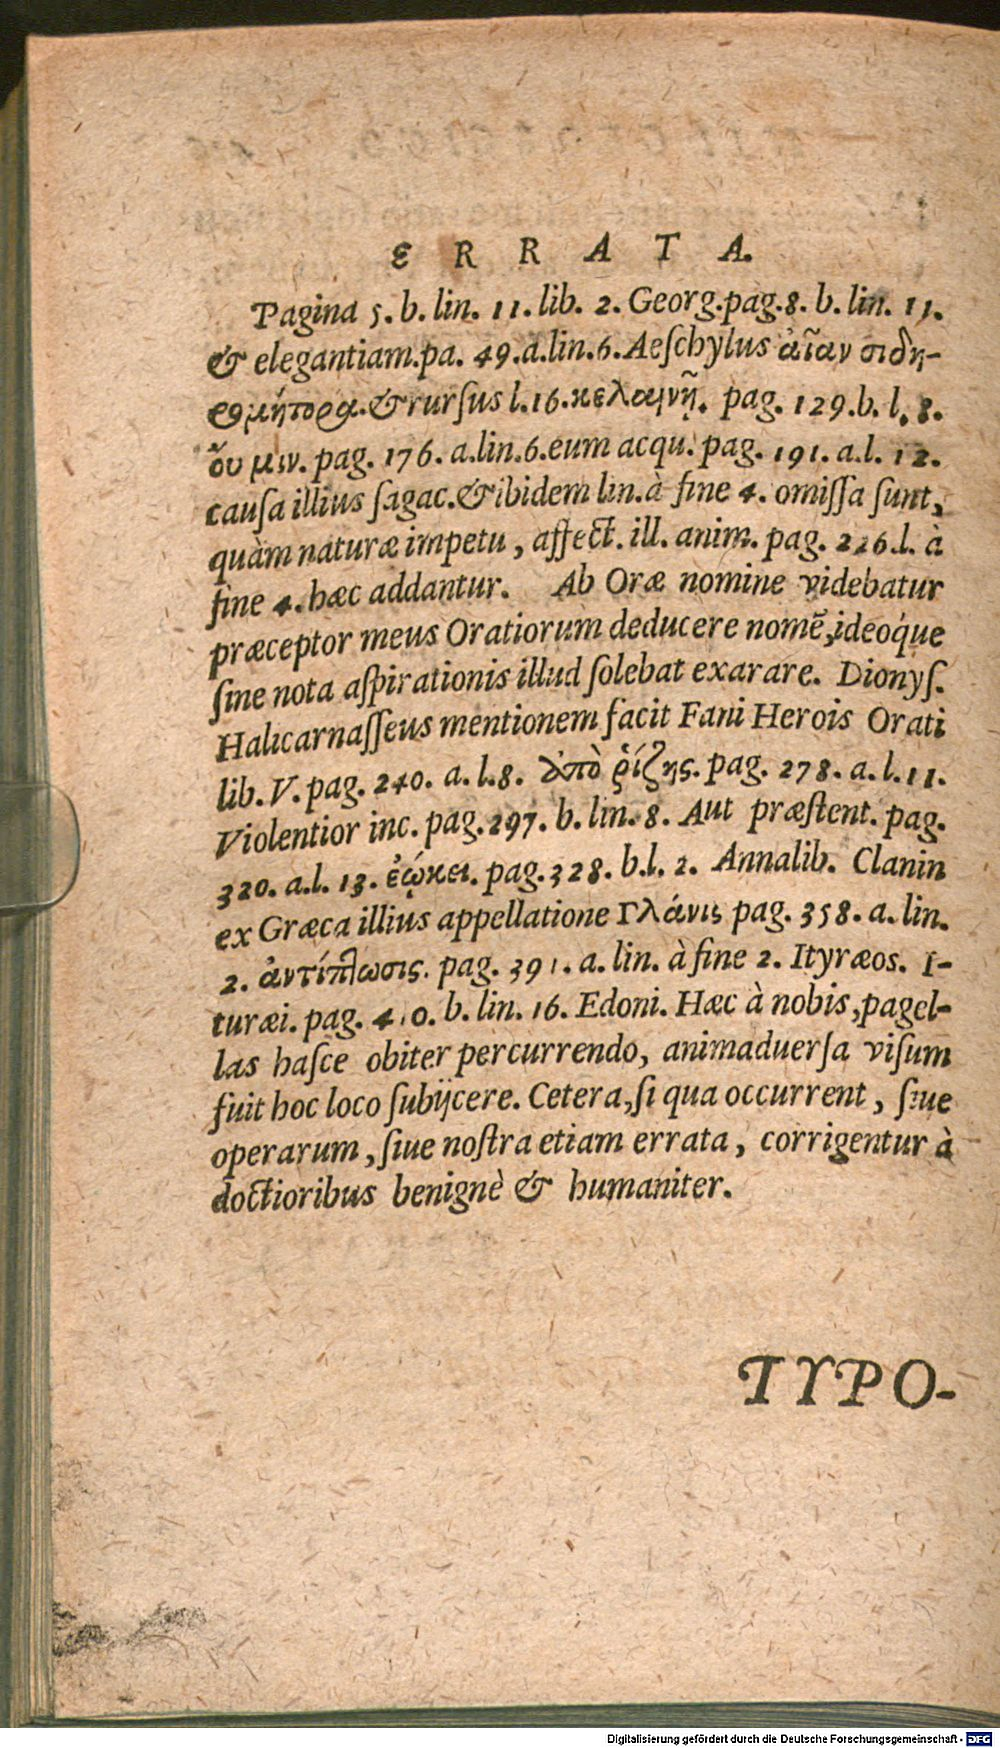 ERRATA.
Pagina 5. b. lin. 11. lib. 2. Georg. pag. 8. b. lin. 11.
& elegantiam. pa. 49. a. lin. 6. Aeſchylus ἀῖαν σιδη-
ρομήτορα. & rurſus l. 16. κελαινῇ. pag. 129. b. l. 8.
οὔ μιν. pag. 176. a. lin. 6. eum acqu. pag. 191. a. l. 12.
cauſa illius ſagac. & ibidem lin. à fine 4. omiſſa ſunt,
quàm naturæ impetu, affect. ill. anim. pag. 226. l. à
fine 4. hæc addantur. Ab Oræ nomine videbatur
præceptor meus Oratiorum deducere nomẽ, ideoq́ue
ſine nota aſpirationis illud ſolebat exarare. Dionyſ.
Halicarnaſſeus mentionem facit Fani Herois Orati
lib. V. pag. 240. a. l. 8. ἀπὸ ῥίζης. pag. 278. a. l. 11.
Violentior inc. pag. 297. b. lin. 8. Aut præſtent. pag.
320. a. l. 13. ἐῴκει. pag. 328. b. l. 2. Annalib. Clanin
ex Græca illius appellatione Γλάνις pag. 358. a. lin.
2. ἀντίπλωσις. pag. 391. a. lin. à fine 2. Ityræos. I-
turæi. pag. 410. b. lin. 16. Edoni. Hæc à nobis, pagel-
las haſce obiter percurrendo, animaduerſa viſum
fuit hoc loco ſubijcere. Cetera, ſi qua occurrent, ſiue
operarum, ſiue noſtra etiam errata, corrigentur à
doctioribus benignè & humaniter.
TYPO-
Digitalisierung gefördert durch die Deutsche Forschungsgemeinschaft - DFG